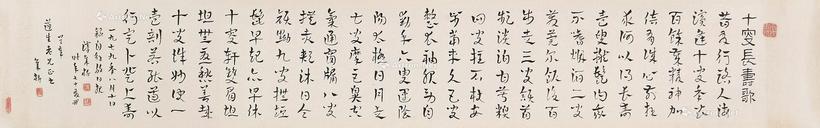 十叟長壽歌
昔有行路人海
濱逢十叟季皆
百餘歲精神加
倍有誠心前拜
求何以得長壽
壹叟撚鬚曰我
不嗜煙酒二叟
莞爾笑飯後百
步走三叟頷首
頻淡泊甘蔬糗
四叟拄木杖安
步當車久五叟
整衣袖服勞自
動手六叟運陰
陽太極日月走
七叟摩巨鼻空
氣通窗牖八叟
撫赤頰沐日令
顏黝九叟撫短
鬢早起亦早休
十叟軒雙眉坦
坦無憂愁善哉
十叟辭妙訣一
壹剖若能遵以
行定卜登上壽
一九七九年